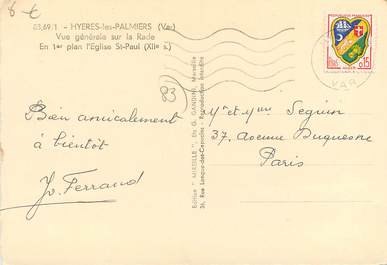 8 €
83,69/1 - HYERES-les-PALMIERS (Var)
Vue générale sur la Rade
En 1er plan l'Eglise St-Paul (XIIe s.)
83
Bien amicalement
à bientôt
Yv. Ferrand
Edition "MIREILLE", Ets G. GANDINI, Marseille
36, Rue Longue-des-Capucins - Reproduction Interdite
0,15
VAR
Mr et Mme Seguin
37, Avenue Duquesne
Paris